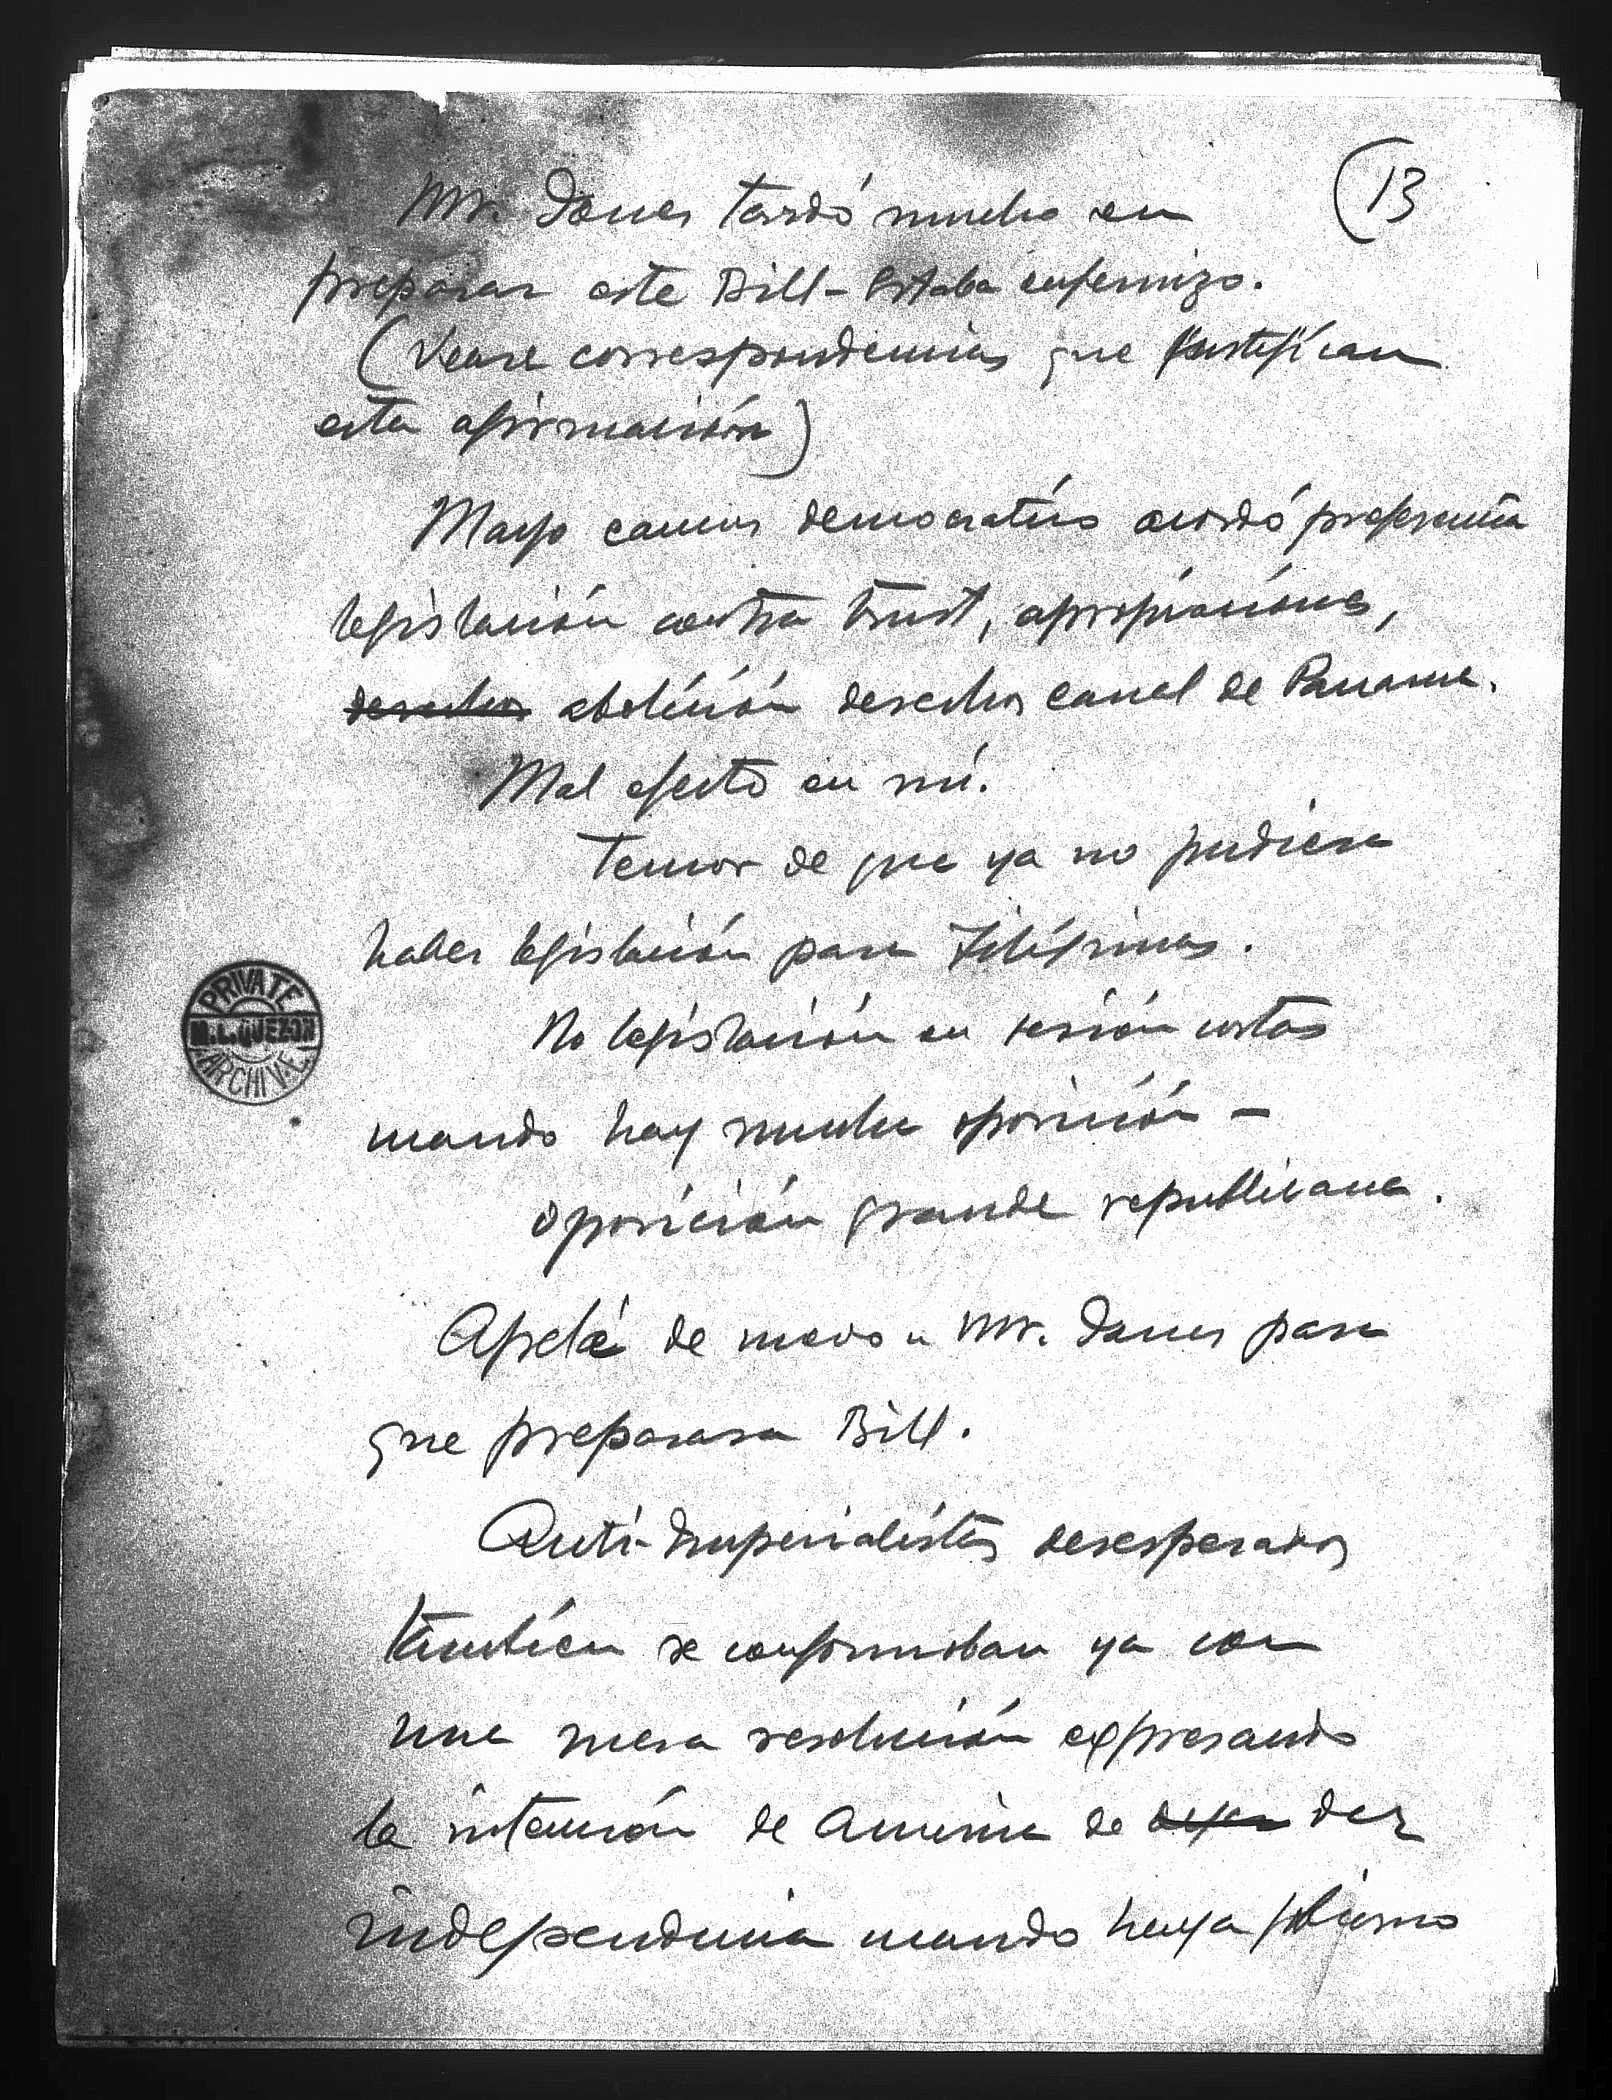 (13
Mr. Jones tardó mucho en
preparar este Bill - Estaba enfermizo.
(Véase correspondencias que justifican
esta afirmación)
Mayo caucus democrático acordó preferencia
legislación contra trust, apropiaciones,
derechos abolición derechos canal de Panama.
Mal efecto en mí.
Temor de que ya no pudiera
haber legislación para Filipinas.
No legislación en sesión cortas
cuando hay mucha oposición -
oposición grande republicana.
Apelé de nuevo a Mr. Jones para
que preparara Bill.
Anti-Imperialistas desesperados
también se conformaban ya con
una mera resolución expresando
la intención de America de dejar dar
independencia cuando haya gobierno
PRIVATE
M.L.QUEZON
ARCHIVE